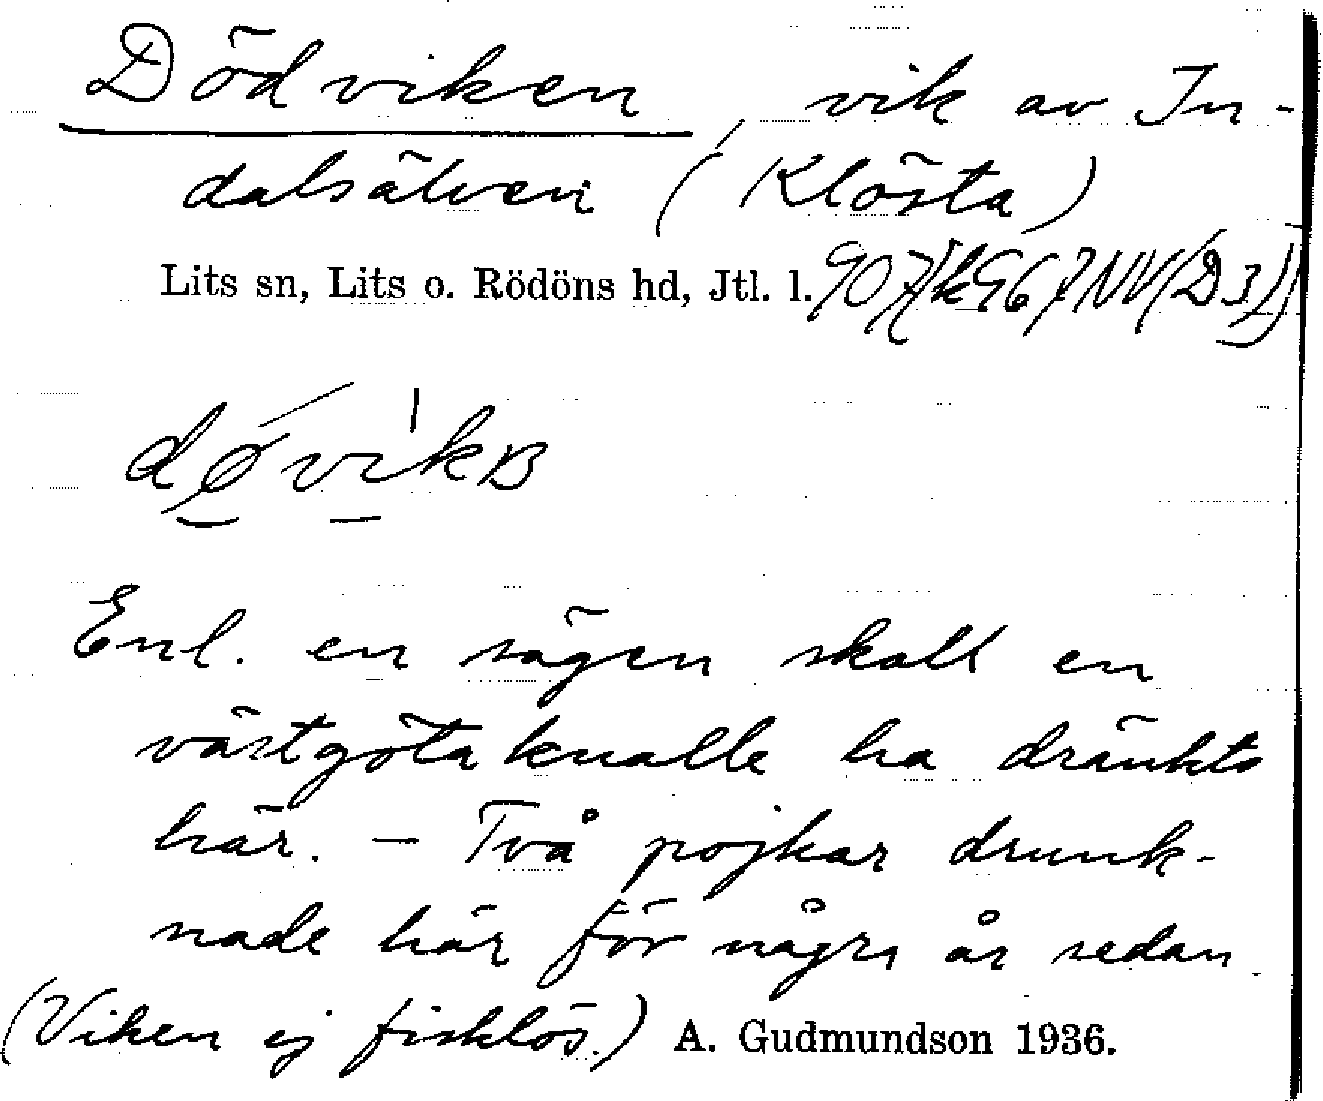 Dödviken, vik av In-
dalsälven (Klösta)
Lits sn, Lits o. Rödöns hd, Jtl. l.
Enl. en sägen skall en
västgötaknalle ha dränkts
här. – Två pojkar drunk-
nade här för några år sedan
(Viken ej fisklös.) A. Gudmundson 1936.